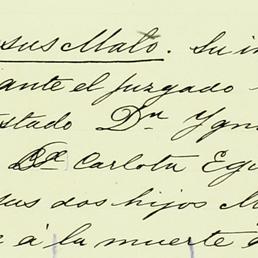 sus Malo. Su in
ante el juzgado
stado Dn Ygn
Da Carlota Egu
sus dos hijos M
á la muerte d